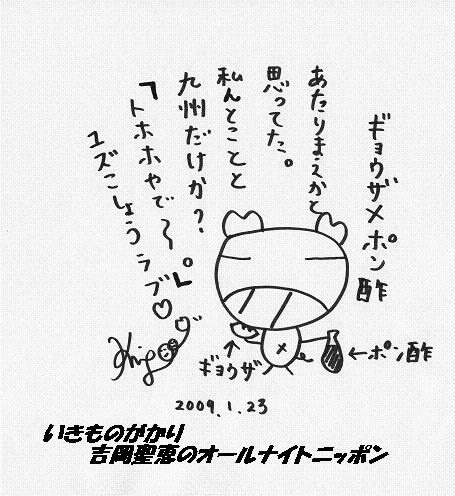 ギョウザメポン酢
あたりまえかと
思ってた。
私んとことと
九州だけか?
「トホホやで〜。」
ユズこしょうラブ♡
ギョウザ
ポン酢
2009.1.23
いきものがかり
吉岡聖恵のオールナイトニッポン